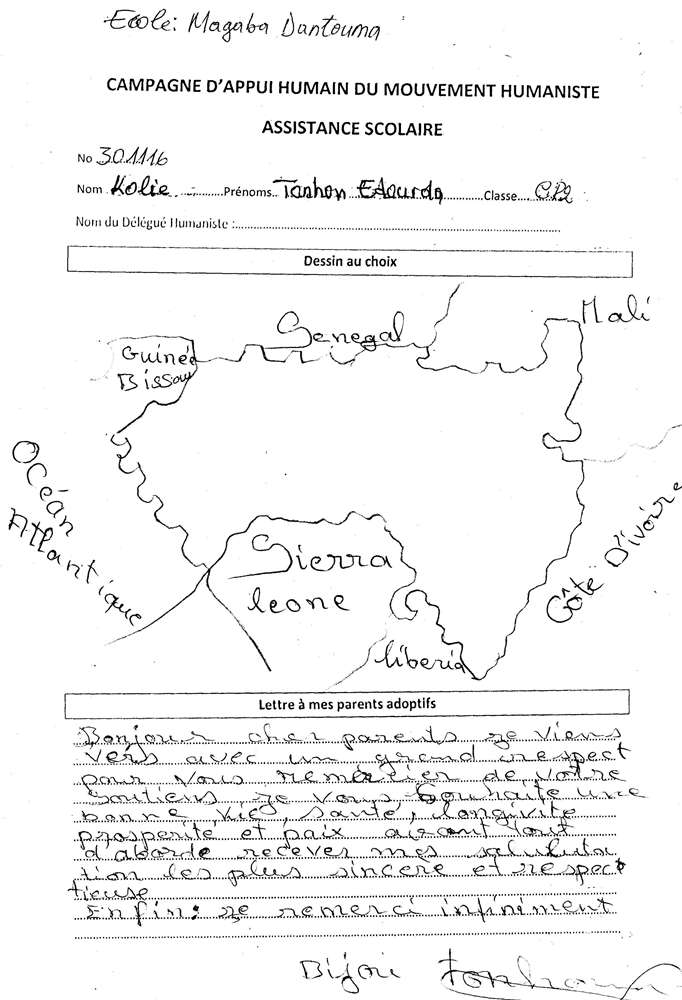 Ecole: Magaba Dantouma
CAMPAGNE D'APPUI HUMAIN DU MOUVEMENT HUMANISTE
ASSISTANCE SCOLAIRE
No 301116
Nom Kolie Prénoms Classe CP2
Nom du Délégué Humaniste :
Dessin au choix
Senegal
Mali
Guinée
Bissau
Océan
Atlantique
Sierra
leone
Côte D'ivoire
liberia
Lettre à mes parents adoptifs
Bonjour cher parents je viens
vers avec un grand respect
pour vous remercier de votre
Soutiens je vous Souhaite une
bonne vie, santé, longivité
prosperité et paix avant tout
d'aborde recever mes salututa
tion les plus sincère et respec
tieuse
Enfin: je remerci infiniment